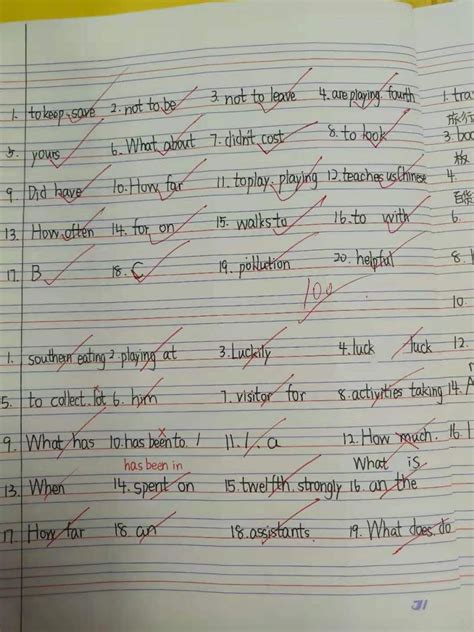 1. to keep, save 2. not to be 3. not to leave 4. are playing fourth 1. tra
5. yours 6. What about 7. didn't cost 8. to took 旅行 3. boo
9. Did have 10. How far 11. to play, playing 12. teaches us Chinese 4.
13. How often 14. for on 15. walks to 16. to with 6.
17. B 18. C 19. pollution 20. helpful 8.
100
10.
1. southern eating 2. playing at 3. Luckily 4. luck luck 12.
5. to collect. lot 6. him 7. visitor for 8. activities taking 14. A
9. What has 10. has been to. 1 11. 1. a 12. How much. 16. 1
has been in What is
13. When 14. spent on 15. twelfth. strongly 16. an the
17. How far 18. an 18. assistants. 19. What does do
31